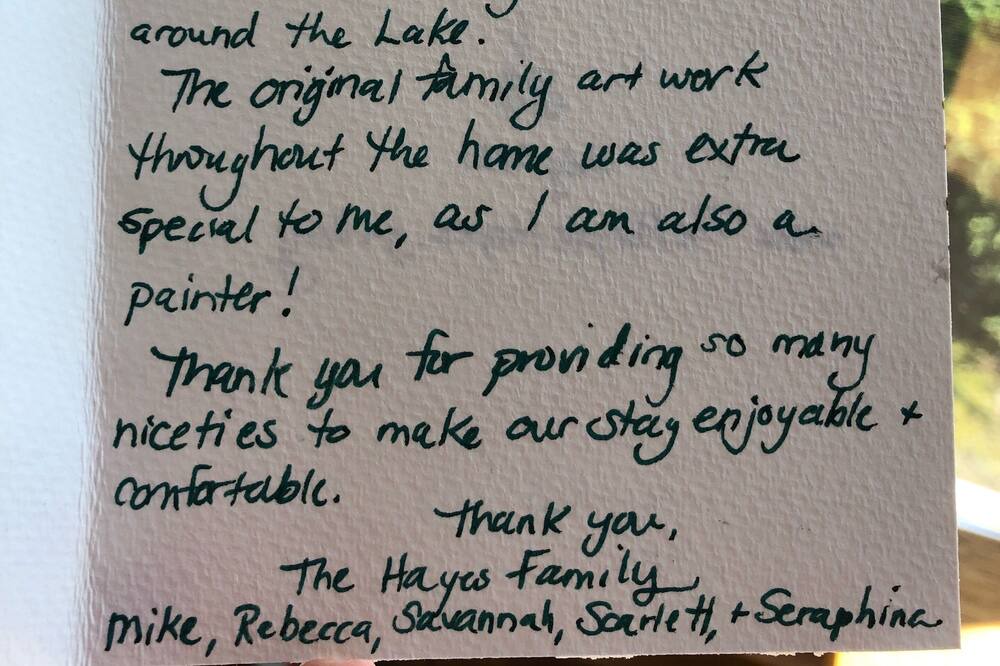 around the Lake.
The original family art work
throughout the home was extra
special to me, as I am also a
painter!
Thank you for providing so many
niceties to make our stay enjoyable +
comfortable.
Thank you,
The Hayes Family
Mike, Rebecca, Savannah, Scarlett, + Seraphina